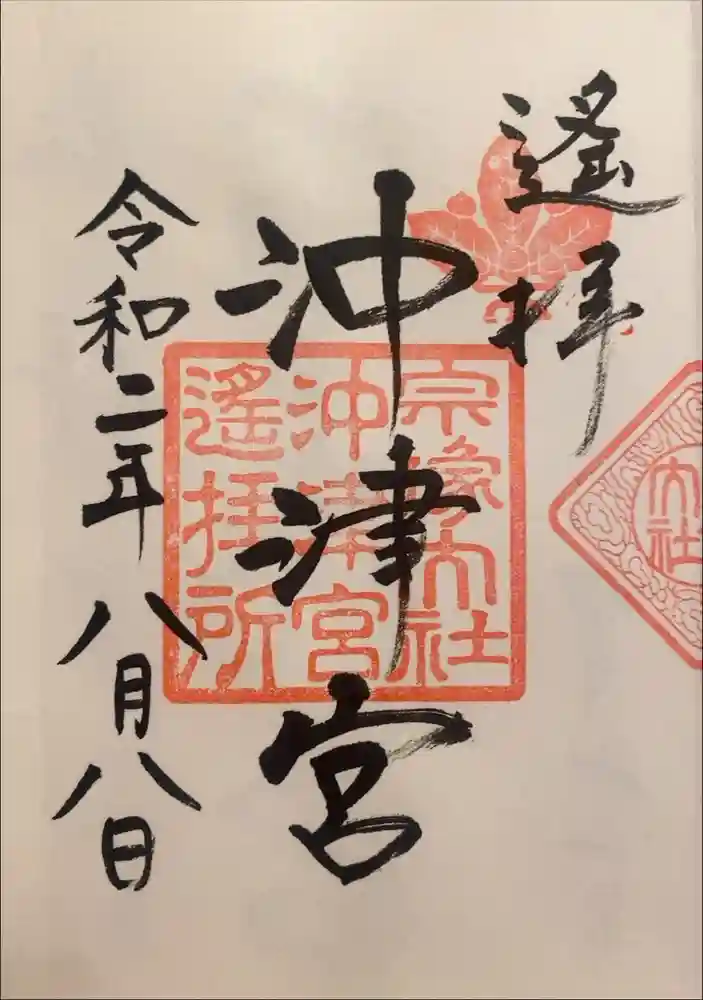 遙拝
沖津宮
令和二年八月八日
宗像大社
沖津宮
遙拝所
大社